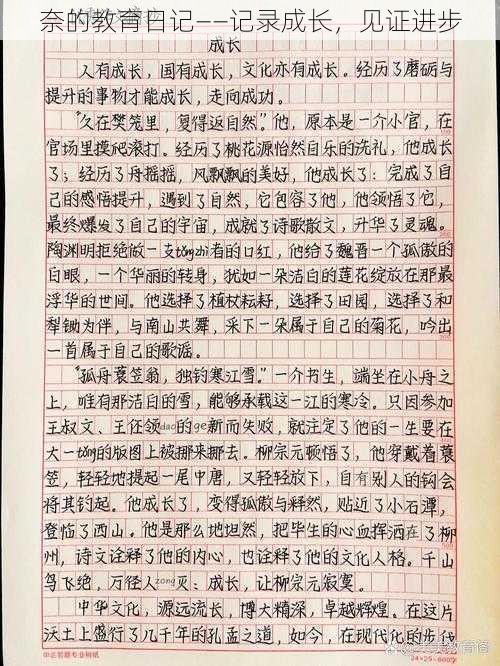 奈的教育日记——记录成长，见证进步
成长
人有成长，国有成长，文化亦有成长。经历了磨砺与
提升的事物才能成长，走向成功。
“久在樊笼里，复得返自然。”他，原本是一个小官，在
官场里摸爬滚打。经历了桃花源怡然自乐的洗礼，他成长
了；经历了舟摇摇，风飘飘的美好，他成长了：完成了自
己的感悟提升，遇到了自然，它包容了他，他领悟了它，
最终爆发了自己的宇宙，成就了诗歌散文，升华了灵魂。
陶渊明拒绝做一支tǒngzhì者的口红，他给了魏晋一个孤傲的
白眼，一个华丽的转身，犹如一朵洁白的莲花绽放在那最
浮华的世间。他选择了植杖耘耔，选择了田园，选择了和
犁锄为伴，与南山共舞，采下一朵属于自己的菊花，吟出
一首属于自己的歌谣。
“孤舟蓑笠翁，独钓寒江雪。”一个书生，端坐在小舟之
上，唯有那洁白的雪，能够承载这一江的寒冷。只因参加
王叔文、王伾领dao的ge新而失败，就注定了他的一生要在
大一tǒng的版图上被挪来挪去。柳宗元顿悟了，他穿戴着蓑
笠，轻轻地提起一尾中唐，又轻轻放下，自有别人的钩会
将其钓起。他成长了，变得孤傲与释然，贴近了小石潭，
登临了西山。他是那么地坦然，把毕生的心血挥洒在了柳
州，诗文诠释了他的内心，也诠释了他的文化人格。千山
鸟飞绝，万径人zong灭：成长，让柳宗元寂寞。
中华文化，源远流长，博大精深，卓越辉煌。在这片
沃土上盛行了几千年的孔孟之道，如今，在现代化的步伐
24×25=600